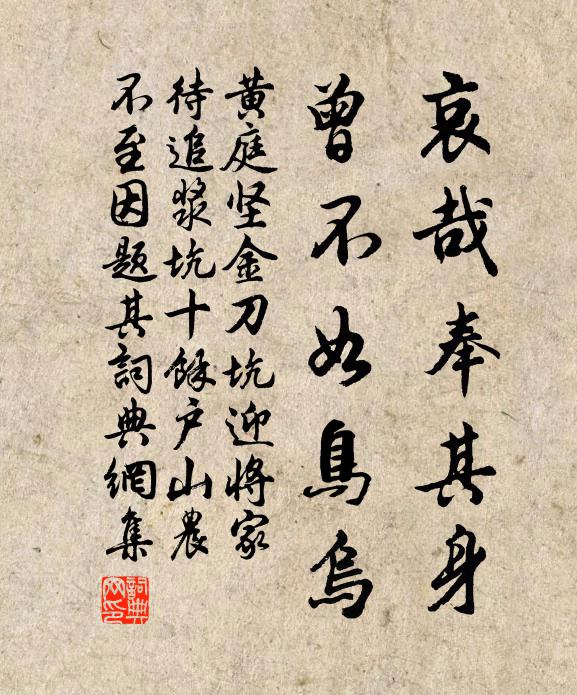 哀哉奉其身
曾不如鳥烏
黄庭坚金刀坑迎將家
待追漿坑十餘户山農
不至因題其詞典網集
詞典網印